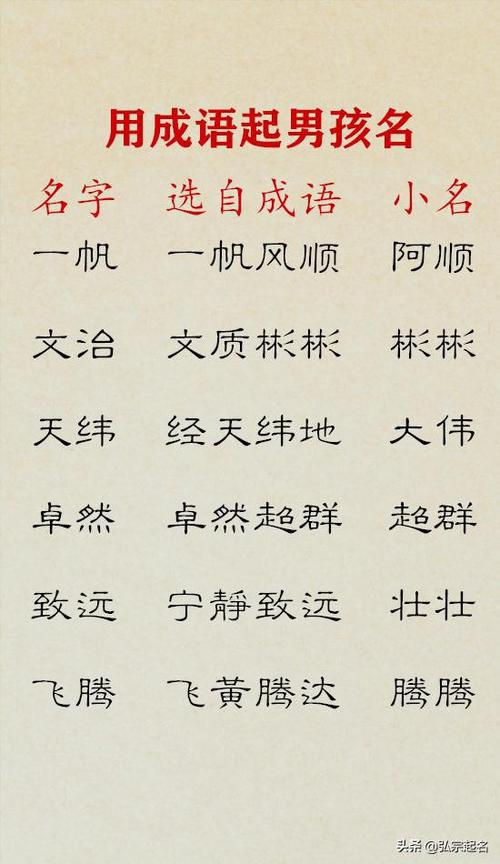 用成语起男孩名
名字 选自成语 小名
一帆 一帆风顺 阿顺
文治 文质彬彬 彬彬
天纬 经天纬地 大伟
卓然 卓然超群 超群
致远 宁静致远 壮壮
飞腾 飞黄腾达 腾腾
头条 @弘宗起名